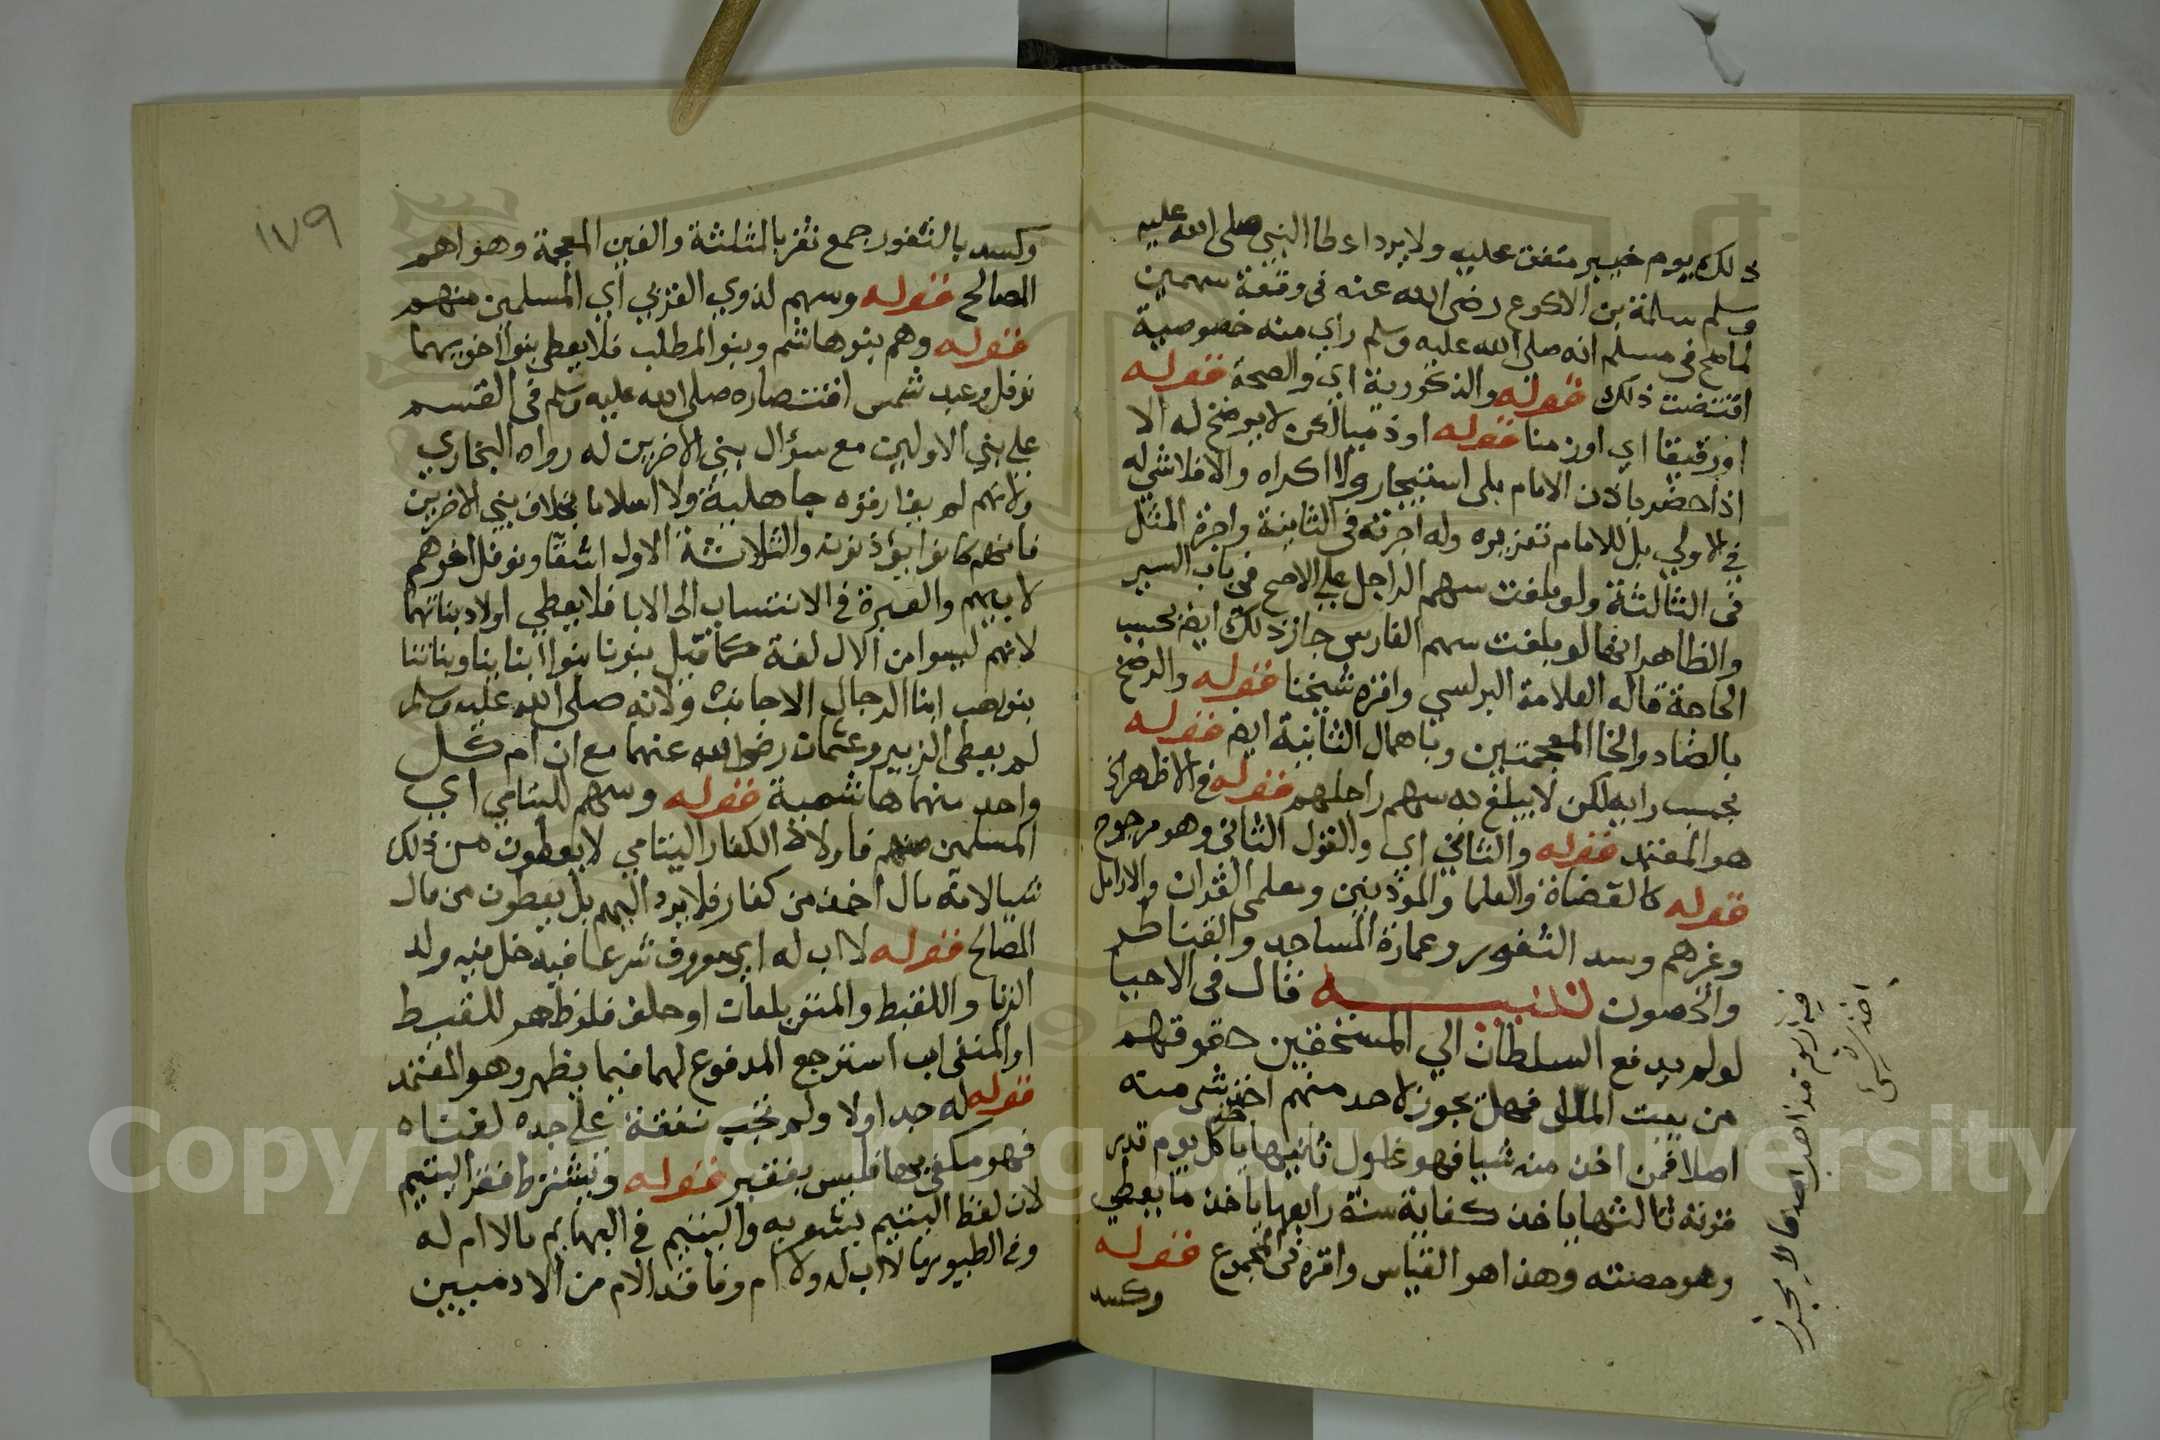 ذلك يوم خيبر متفق عليه ولا يرد اعطا النبي صلى الله عليه
وسلم سلمة بن الاكوع رضى الله عنه في وقعة سهمين
لما صح في مسلم انه صلى الله عليه وسلم راي منه خصوصية
اقتضت ذلك قوله والذكورية اي والصحة قوله
اورقيقا اي اوزمنا قوله اوذميا لكن لا يرضخ له الا
اذا حضر باذن الامام بلى استيجار ولا اكراه والا فلا شي له
في الاولي بل للامام تعزيره وله اجرته في الثانية واجرة المثل
في الثالثة ولو بلغت سهم الراجل علي الاصح في باب السير
والظاهر انها لو بلغت سهم الفارس جاز ذلك ايض بحسب
الحاجة قاله العلامة البرلسي واقره شيخنا قوله والرضخ
بالضاد والخا المعجمتين وباهمال الثانية ايض قوله
بحسب رايه لكن لا يبلغ به سهم راجلهم قوله في الاظهر اي
هو المعتمد قوله والثاني اي والقول الثاني وهو مرجوح
قوله كالقضاة والعلما والموذنين ومعلمى القران والارامل
وغرهم وسد الثغور وعمارة المساجد والقناطر
والحصون تنبيه قال في الاحيا
لو لم يدفع السلطان الي المستحقين حقوقهم
من بيت المال فهل يجوز لاحد منهم اخذ شي منه
اصلا فمن اخذ منه شيا فهو غلول ثانيها ياخذ كل يوم قدر
قوته ثالثها ياخذ كفاية سنة رابعها ياخذ ما يعطي
وهو حصته وهذا هو القياس واقره في المجموع قوله
وكسد
فيه اربع مذاهب احدها لا يجوز
اخذ شي
١٧٩
وكسد بالثغور جمع ثغر بالمثلثة والغين المعجمة وهو اهم
المصالح قوله وسهم لذوي القربي اي المسلمين منهم
قوله وهم بنو هاشم وبنو المطلب فلا يعطى بنوا اخويهما
نوفل وعبد شمس اقتصاره صلى الله عليه وسلم في القسم
علي بني الاولين مع سؤال بني الاخرين له رواه البخاري
ولانهم لم يفارقوه جاهلية ولا اسلاما بخلاف بني الاخرين
فانهم كانوا يؤذونه والثلاثة الاول اشقا ونوفل اخوهم
لابيهم والعبرة في الانتساب الى الابا فلا يعطي اولاد بناتهما
لانهم ليسوا من الآل لغة كما قيل بنونا بنوا ابنا ينا وبناتنا
بنوهب ابنا الرجال الاجانب ولانه صلى الله عليه وسلم
لم يعطى الزبير وعثمان رضى الله عنهما مع ان ام كل
واحد منهما هاشمية قوله وسهم لليتامي اي
المسلمين منهم فاولاد الكفار اليتامي لا يعطون من ذلك
شيا لانه مال اخذ من كفار فلا يرد اليهم بل يعطون من مال
المصالح قوله لا اب له اي معروف شرعا فيدخل فيه ولد
الزنا واللقيط والمنفي بلعان او حلف فلو ظهر للقيط
او المنفى اب استرجع المدفوع لهما فيما يظهر وهو المعتمد
قوله له جد اولا ولم تجب نفقة علي جده لغناه
فهو مكفي بها فليس بفقير قوله ويشترط فقر اليتيم
لان لفظ اليتيم يشعر به واليتيم في البهايم مالا ام له
وفي الطيور مالا اب له ولا ام وفاقد الام من الادميين